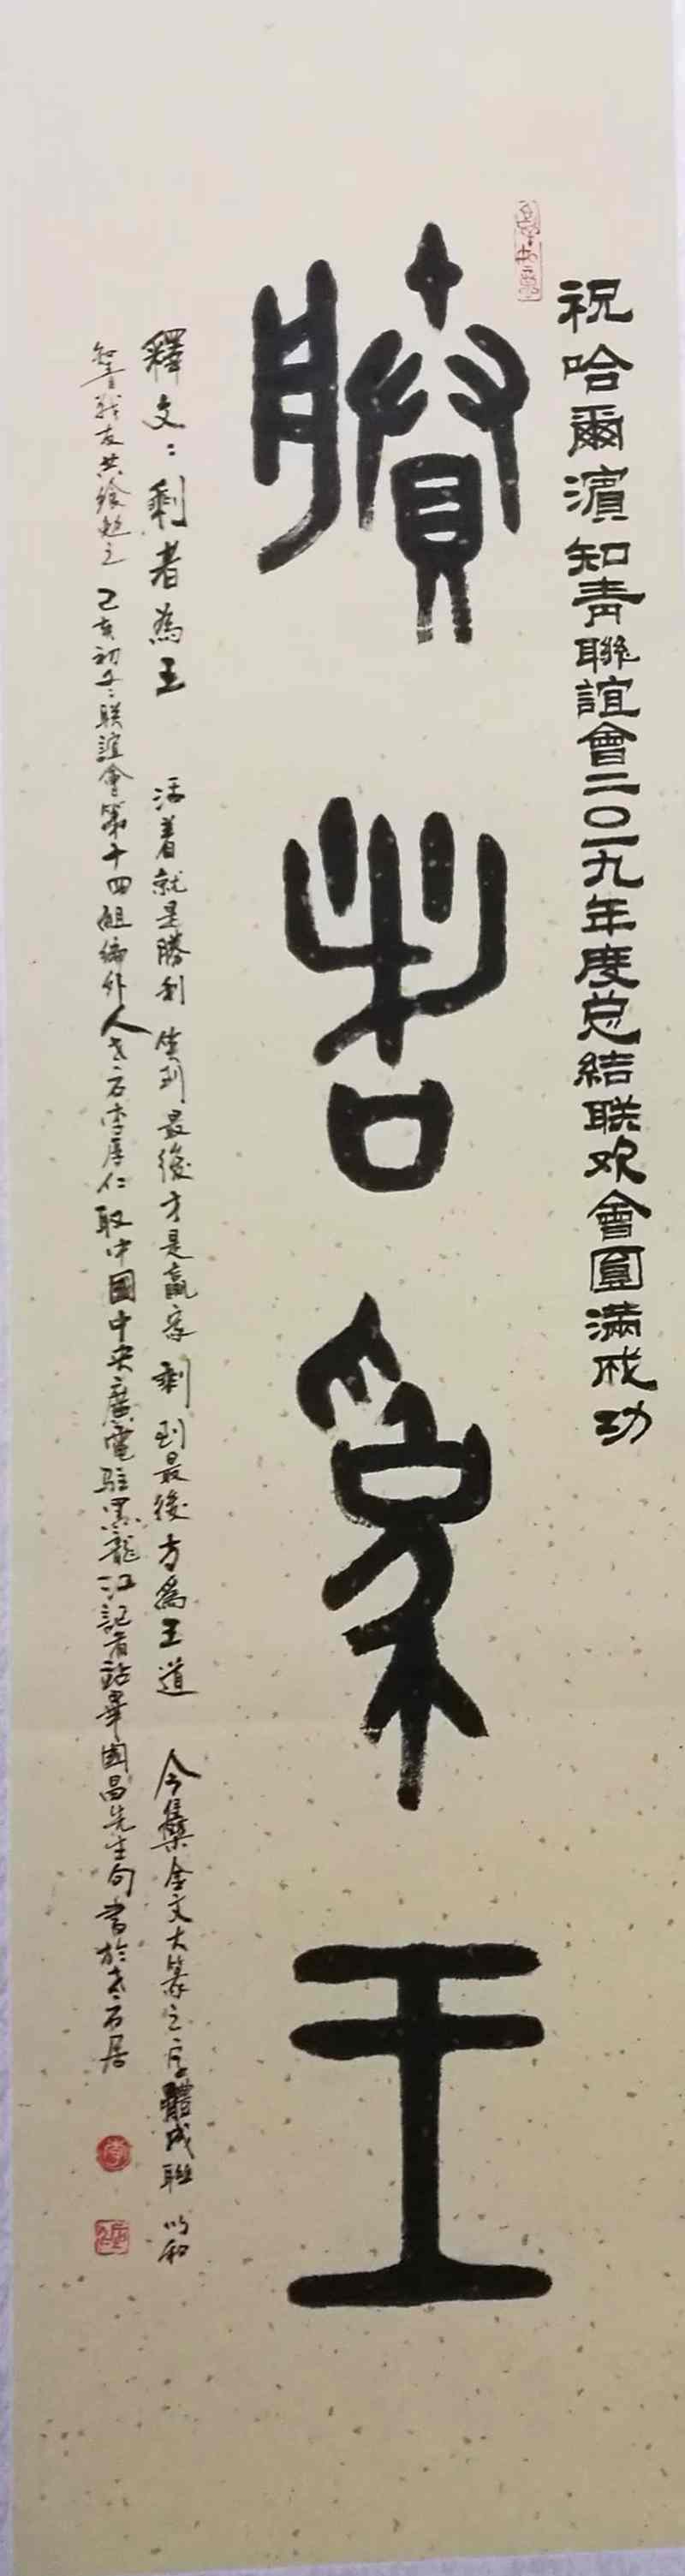 祝哈爾濱知青聯誼會二〇一九年度总結联欢會圓滿成功
賸者為王
釋文：剩者為王 活着就是勝利 笑到最後才是贏家 剩到最後方為王道 今集金文大篆之字體成聯 以和
知青战友共徐勉之 己亥初冬 联誼會第十四組編外人老石李厚仁取中國中央廣電駐黑龍江記者站畢國昌先生句 書於老石居